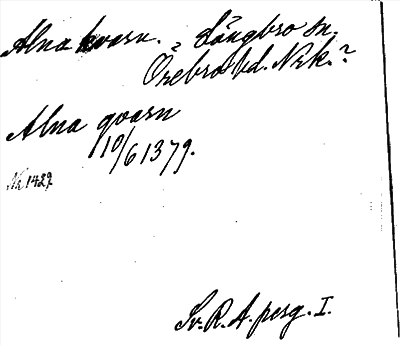 Alna kvarn. ? Långbro sn.
Örebro hd. Nrk.?
Alna qvarn
10/6 1379.
Nr 1429.
Sv. R. A. perg. I.